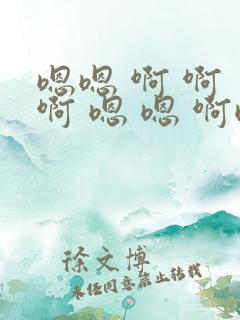 嗯嗯 啊 啊
啊 嗯 嗯 啊
徐文博
未经同意禁止转载